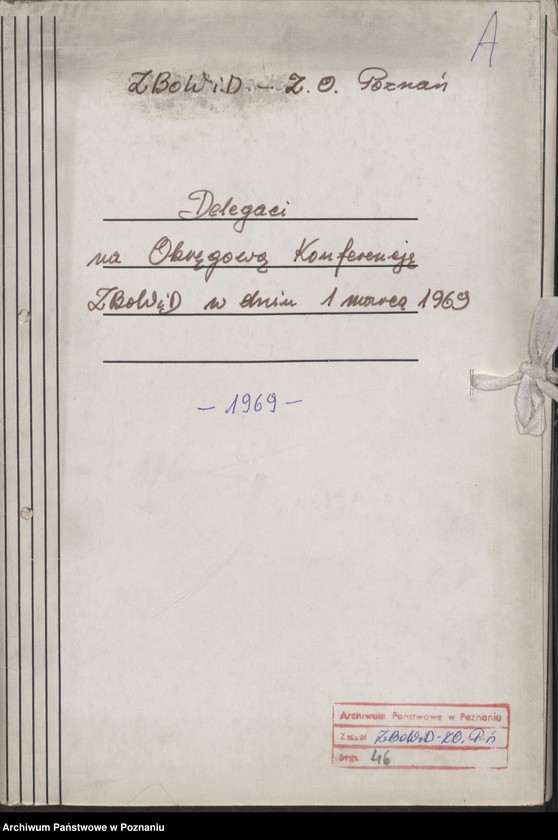 A
ZBoWiD - Z.O. Poznań
Delegaci
na Okręgową Konferencję
ZBoWiD w dniu 1 marca 1969
- 1969 -
Archiwum Państwowe w Poznaniu
Zespół ZBoWiD-ZO, P-ń
Sygn. 46
Archiwum Państwowe w Poznaniu